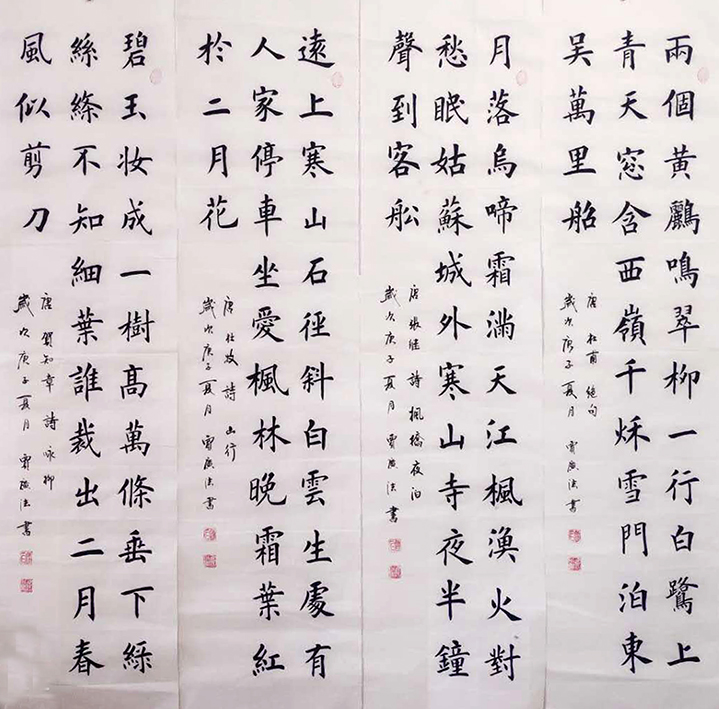 兩個黃鸝鳴翠柳一行白鷺上
青天窓含西嶺千秌雪門泊東
吳萬里船
唐 杜甫 絕句
歲次庚子夏月 書
月落烏啼霜滿天江楓漁火對
愁眠姑蘇城外寒山寺夜半鐘
聲到客舩
唐 張继 詩 楓橋夜泊
歲次庚子夏月 書
遠上寒山石徑斜白雲生處有
人家停車坐愛楓林晚霜葉紅
於二月花
唐 杜牧 詩 山行
歲次庚子夏月 書
碧玉妆成一樹高萬條垂下綠
絲絛不知細葉誰裁出二月春
風似剪刀
唐 賀知章 詩 咏柳
歲次庚子夏月 書